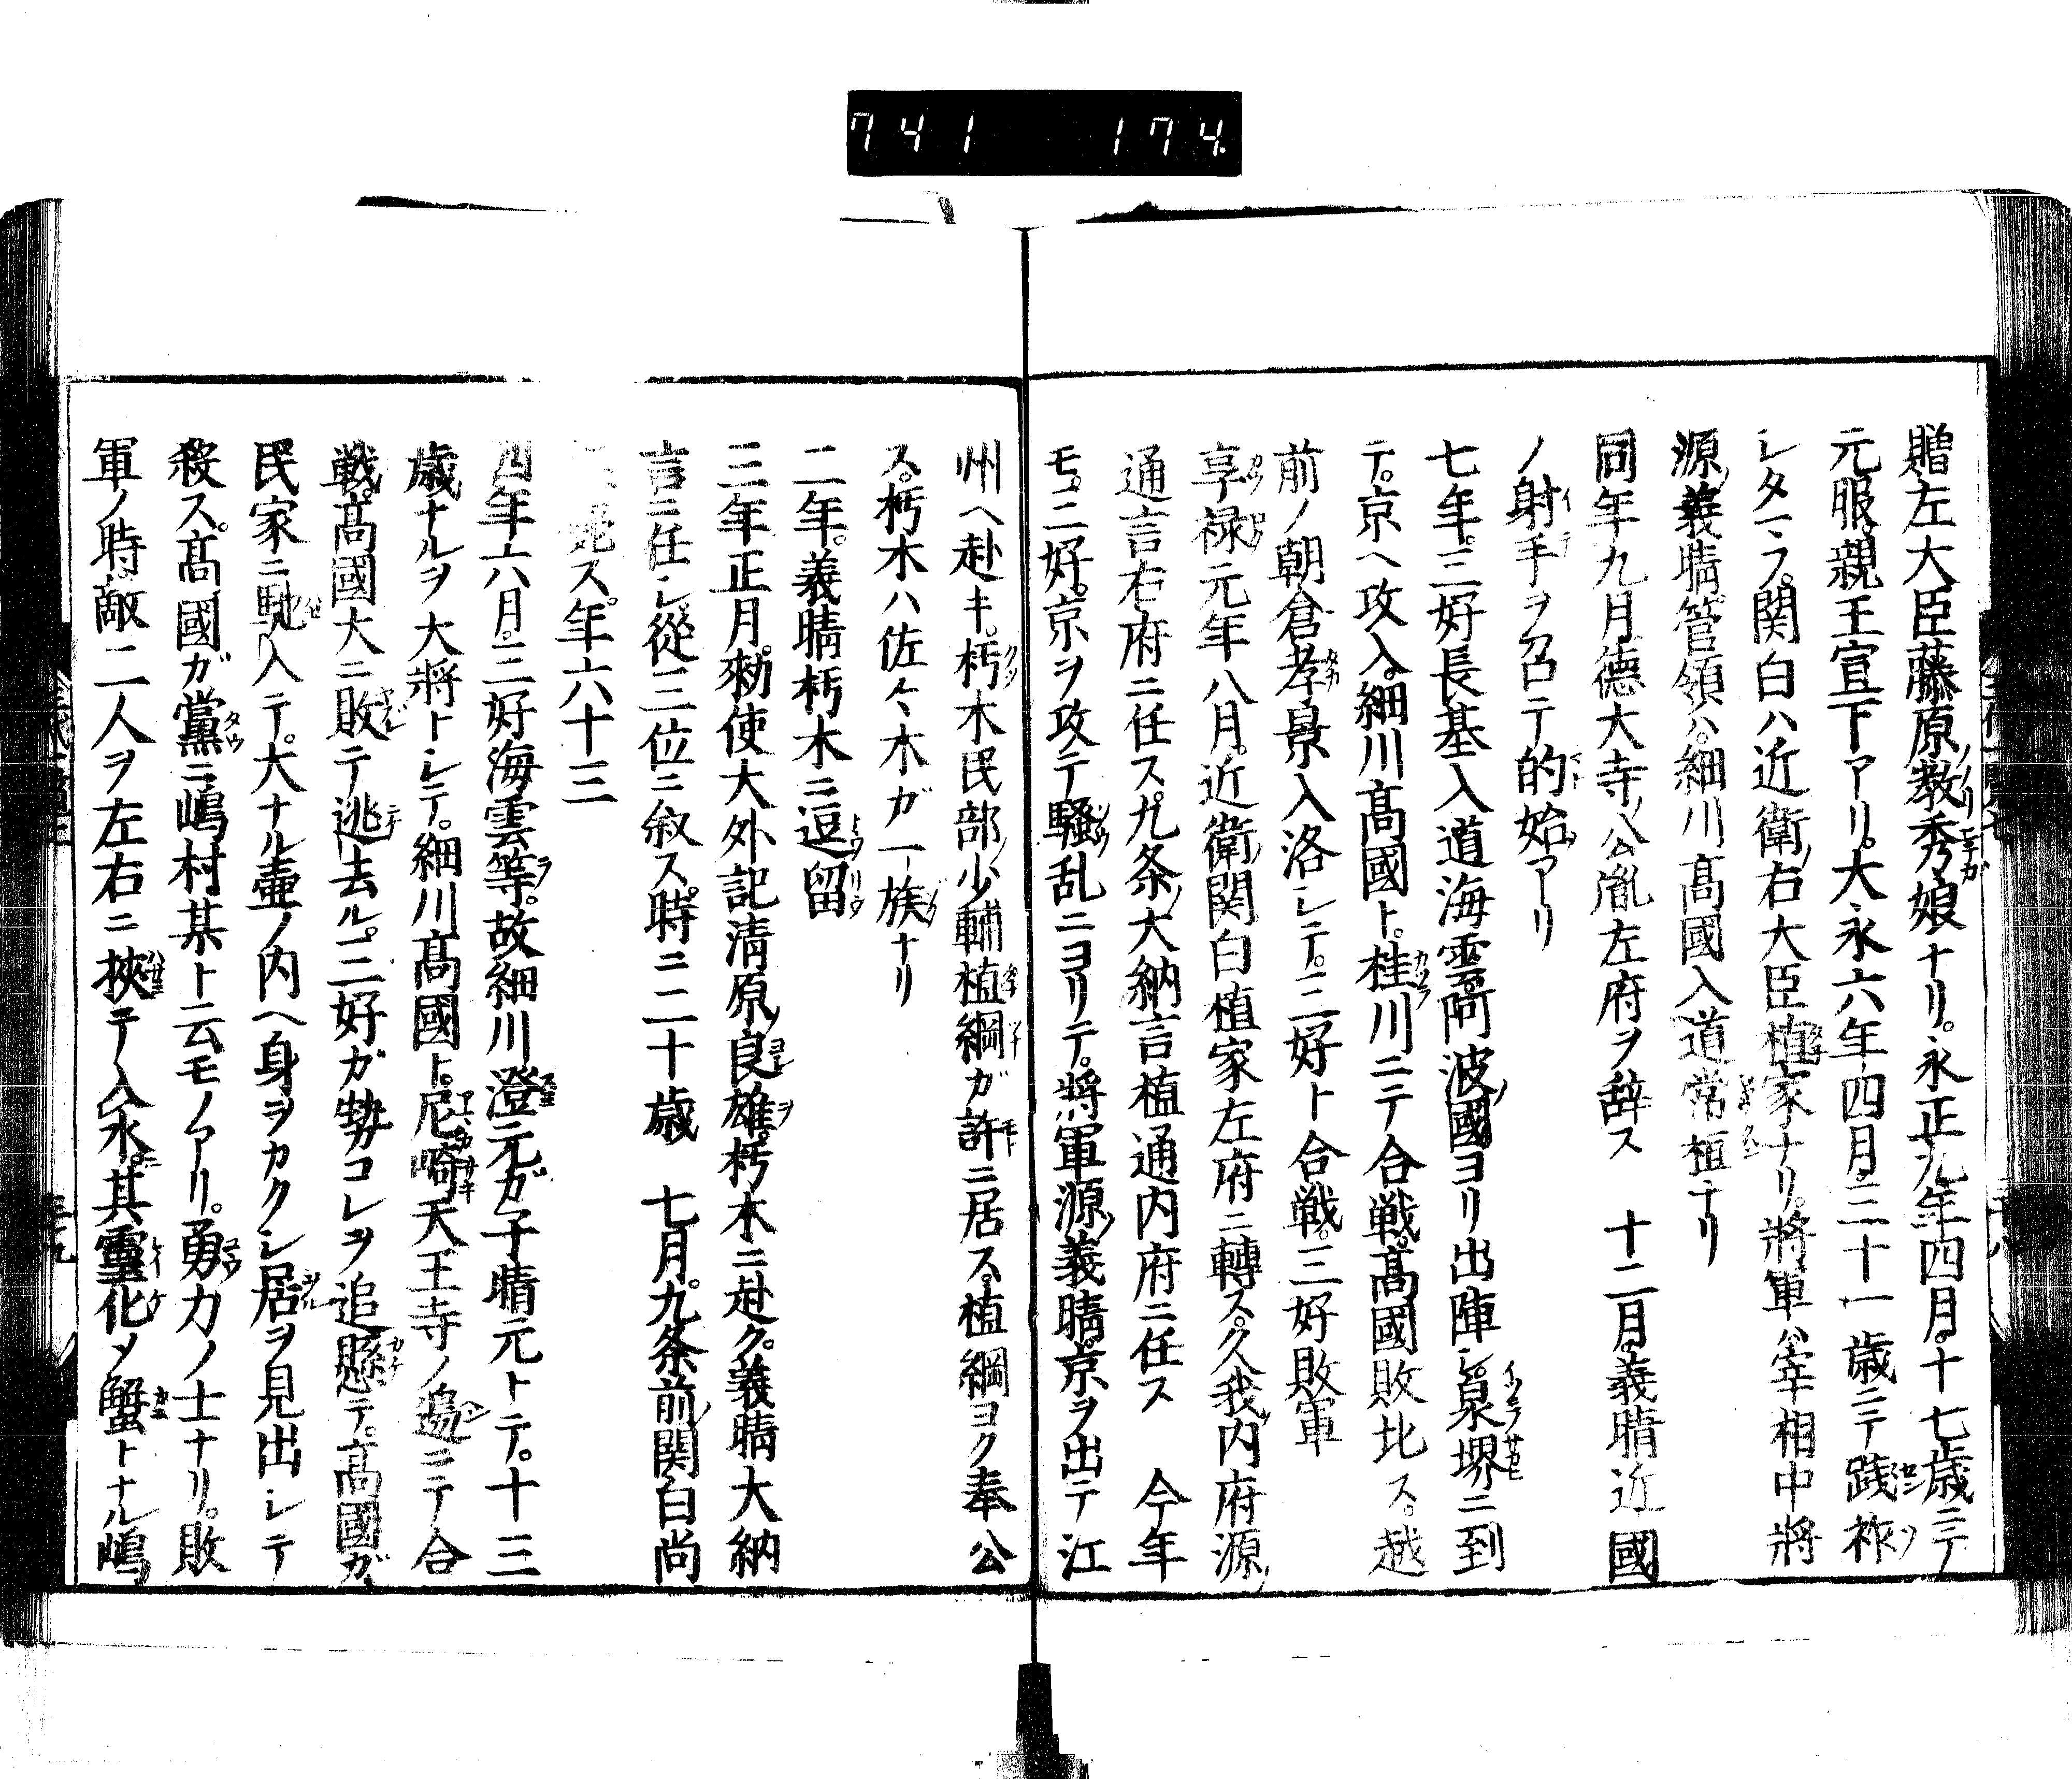 741 174.
贈左大臣藤原教秀娘ナリ。永正九年四月。十七歳ニテ
元服。親王宣下アリ。大永六年四月。三十一歳ニテ践祚
シタマフ。関白ハ近衛右大臣植家ナリ。將軍ハ宰相中將
源義晴。管領ハ。細川髙國入道常植ナリ
同年九月徳大寺公胤左府ヲ辞ス 十二月。義晴近國
ノ射手ヲ召テ的始アリ
七年。三好長基入道海雲阿波國ヨリ出陣シ。泉堺ニ到
テ。京ヘ攻入。細川髙國ト。桂川ニテ合戦。髙國敗北ス。越
前ノ朝倉孝景入洛シテ。三好ト合戦。三好敗軍
享禄元年八月。近衛関白植家左府ニ轉ス。久我内府源
通言右府ニ任ス。九条大納言植通内府ニ任ス 今年
モ。三好。京ヲ攻テ騒乱ニヨリテ。將軍源義晴。京ヲ出テ江
州ヘ赴キ。朽木民部少輔植綱ガ許ニ居ス。植綱ヨク奉公
ス。朽木ハ佐々木ガ一族ナリ
二年。義晴朽木ニ逗留
三年正月。勅使大外記清原良雄。朽木ニ赴ク。義晴大納
言ニ任シ從三位ニ叙ス。時ニ二十歳 七月。九条前関白尚
ス。年六十三
四年六月。三好海雲等。故細川澄元ガ子晴元トテ。十三
歳ナルヲ大將トシテ。細川髙國ト。尼崎天王寺ノ邉ニテ合
戦。髙國大ニ敗テ逃去ル。三好ガ勢コレヲ追懸テ。髙國ガ
民家ニ馳入テ。大ナル壷ノ内ヘ身ヲカクシ居ヲ見出シテ
殺ス。髙國ガ黨ニ嶋村某ト云モノアリ。勇力ノ士ナリ。敗
軍ノ時。敵二人ヲ左右ニ挾テ入水。其靈化メ蟹トナル嶋